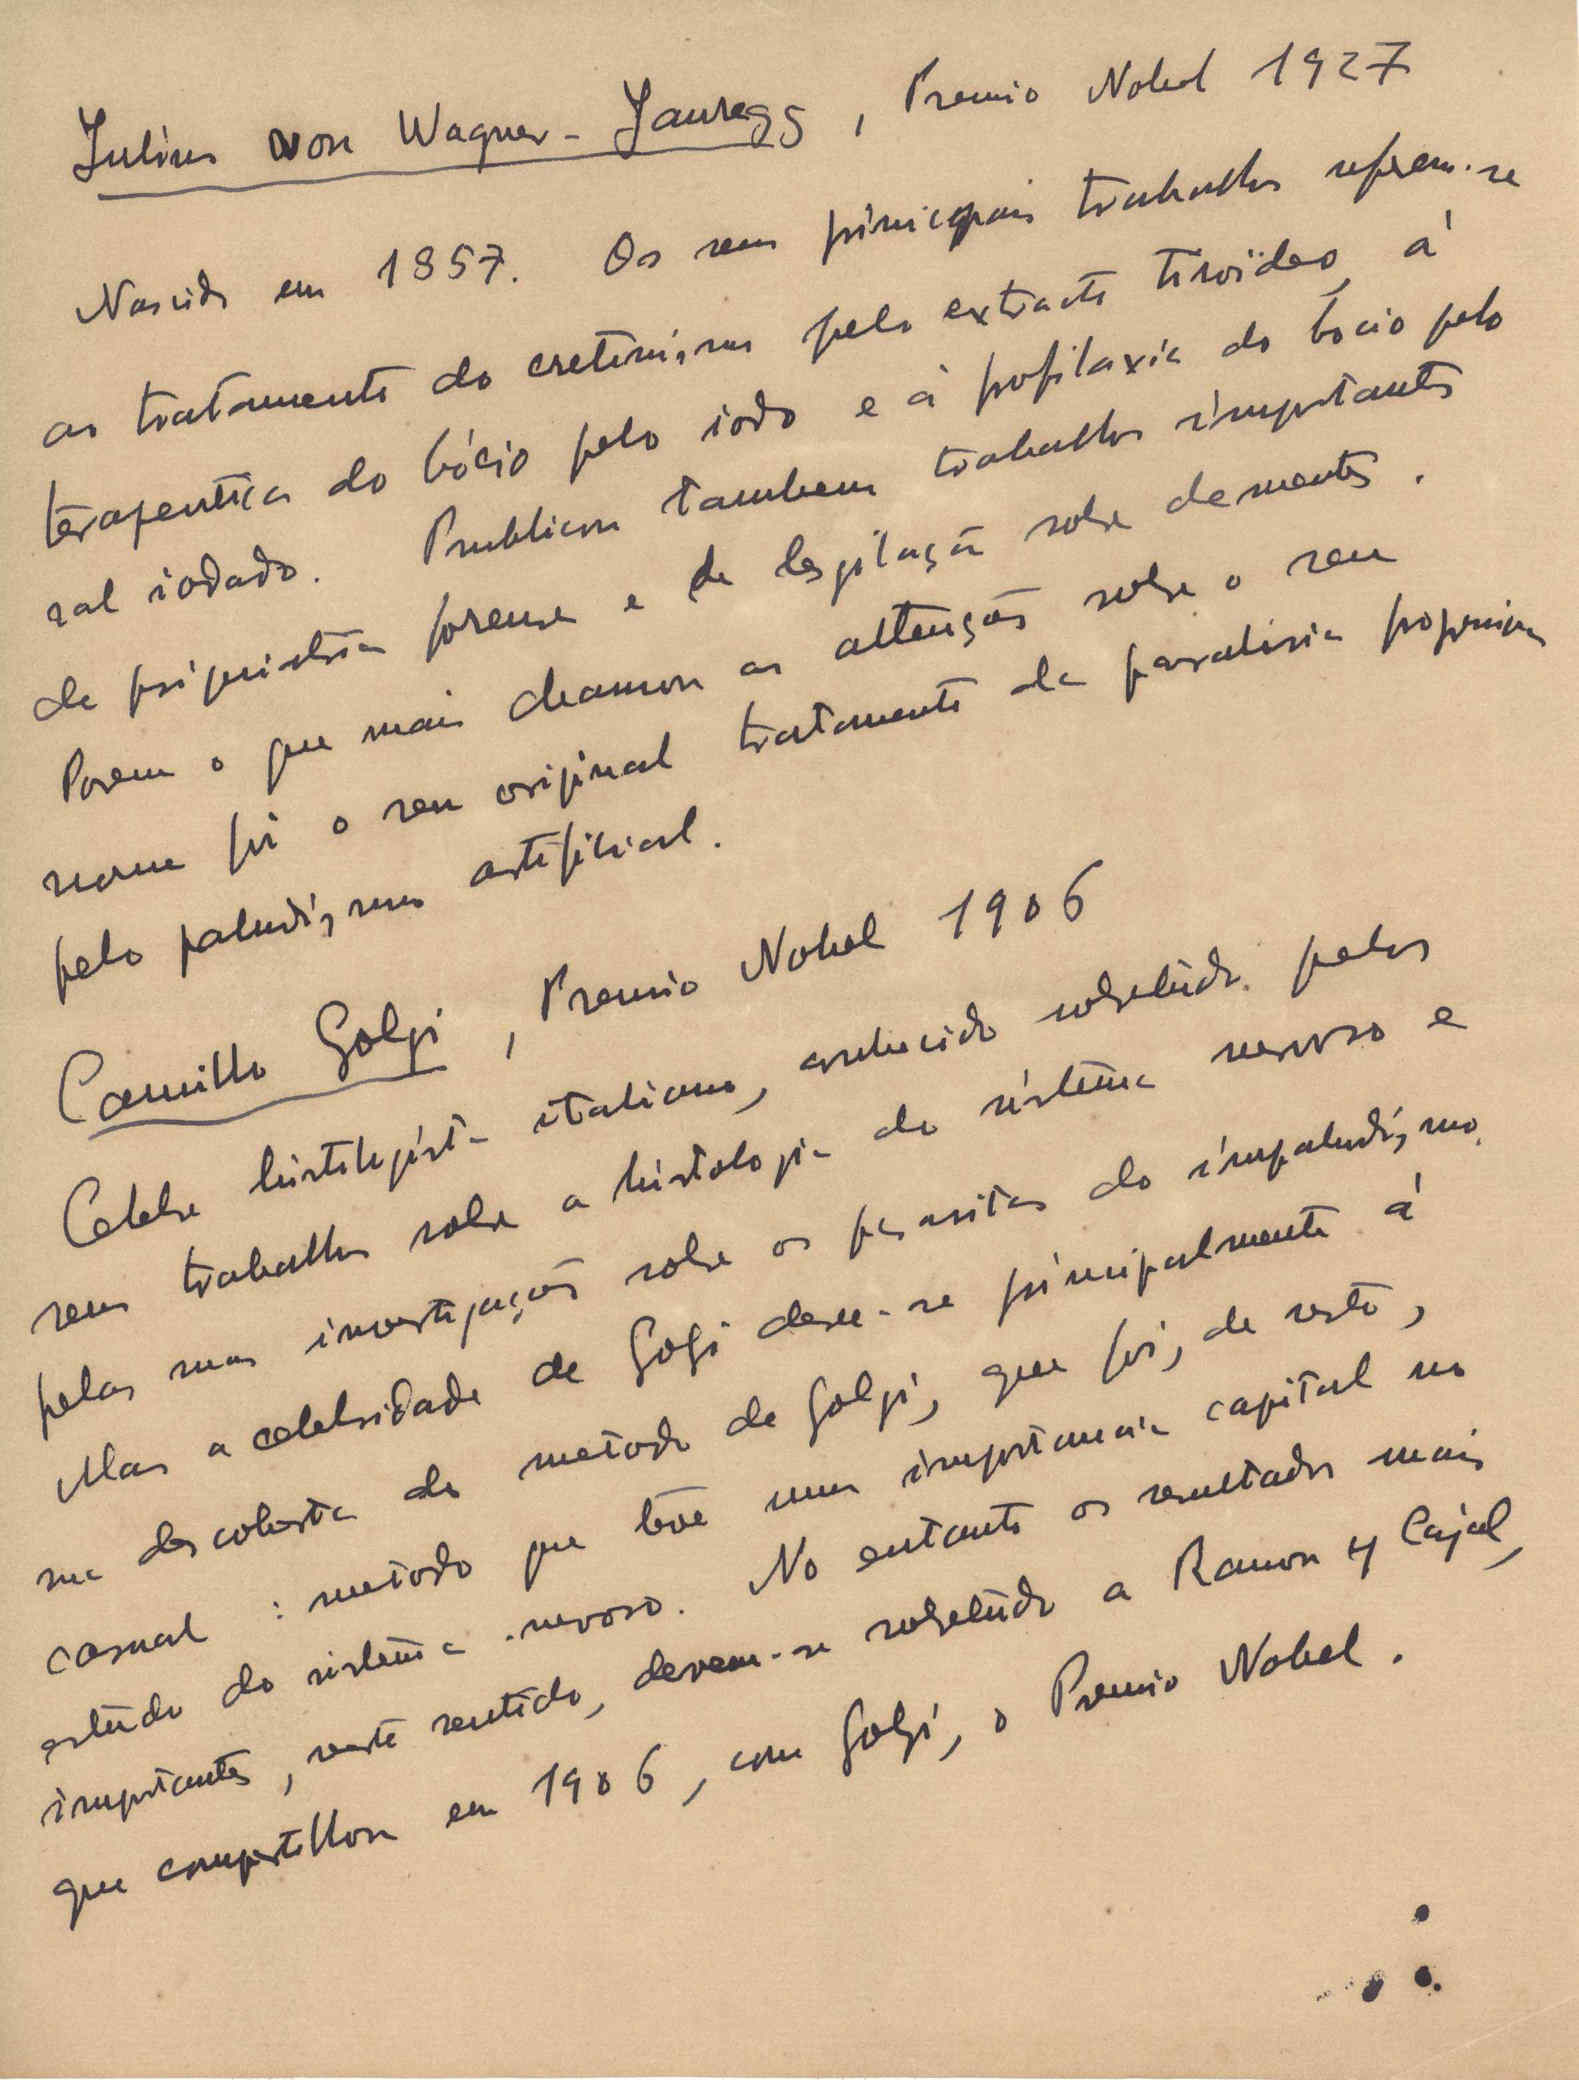 Julius von Wagner-Jauregg, Premio Nobel 1927
Nascido em 1857. Os seus principais trabalhos referem-se
ao tratamento do cretinismo pelo extracto tiroïdeo, á
terapeutica do bócio pelo iodo e á profilaxia do bocio pelo
sal iodado. Publicou tambem trabalhos importantes
de psiquiatria forense e de legislação sobre dementes.
Porem o que mais chamou as attenções sobre o seu
nome foi o seu original tratamento da paralisia progressiva
pelo paludismo artificial.
Camillo Golgi, Premio Nobel 1906
Celebre histologista italiano, conhecido sobretudo pelos
seus trabalhos sobre a histologia do sistema nervoso e
pelas suas investigações sobre os parasitas do impaludismo.
Mas a celebridade de Golgi deve-se principalmente á
sua descoberta do metodo de Golgi, que foi, de resto,
casual : metodo que teve uma importancia capital no
estudo do sistema nervoso. No entanto os resultados mais
importantes, neste sentido, devem-se sobretudo a Ramon y Cajal,
que compartilhou em 1906, com Golgi, o Premio Nobel.